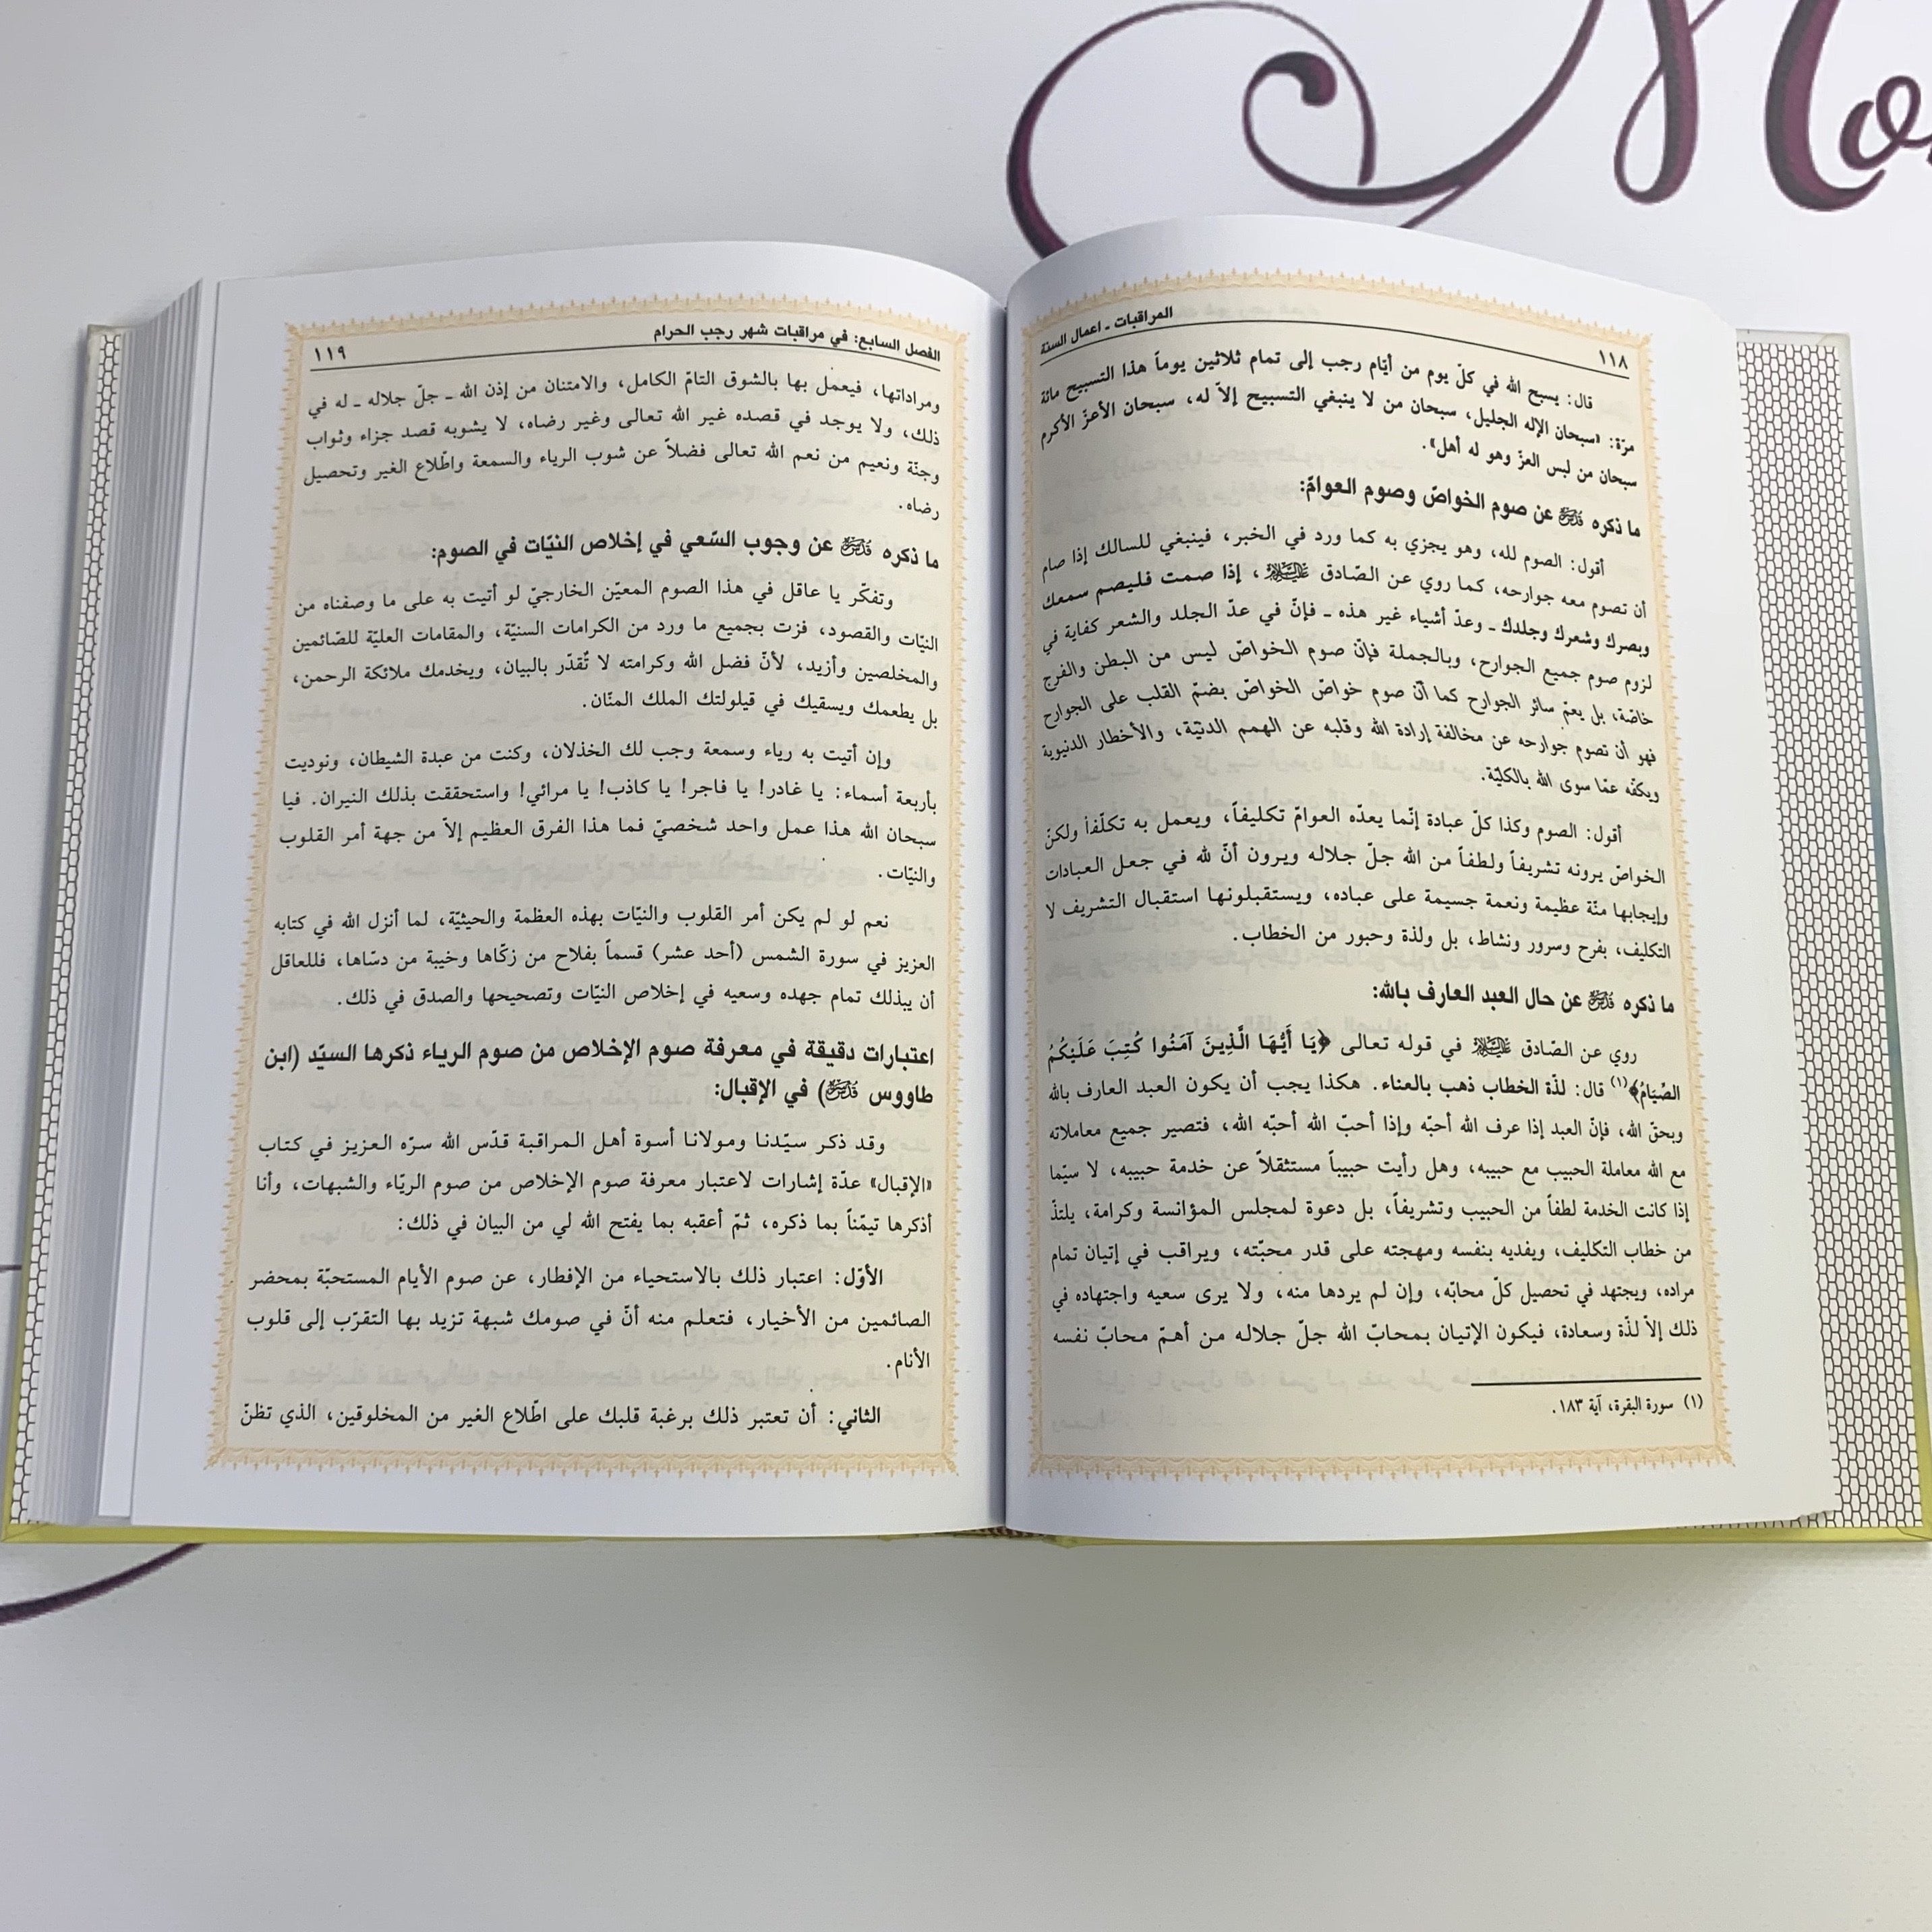 ١١٨
المراقبات ـ اعمال السنة
قال: يسبح الله في كلّ يوم من أيّام رجب إلى تمام ثلاثين يوماً هذا التسبيح مائة
مرّة: «سبحان الإله الجليل، سبحان من لا ينبغي التسبيح إلاّ له، سبحان الأعزّ الأكرم
سبحان من لبس العزّ وهو له أهل».
ما ذكره قدس سره عن صوم الخواصّ وصوم العوامّ:
أقول: الصوم لله، وهو يجزي به كما ورد في الخبر، فينبغي للسالك إذا صام
أن تصوم معه جوارحه، كما روي عن الصّادق عليه السلام، إذا صمت فليصم سمعك
وبصرك وشعرك وجلدك ـ وعدّ أشياء غير هذه ـ فإنّ في عدّ الجلد والشعر كفاية في
لزوم صوم جميع الجوارح، وبالجملة فإنّ صوم الخواصّ ليس من البطن والفرج
خاصّة، بل يعمّ سائر الجوارح كما أنّ صوم خواصّ الخواصّ بضمّ القلب على الجوارح
فهو أن تصوم جوارحه عن مخالفة إرادة الله وقلبه عن الهمم الدنيّة، والأخطار الدنيوية
ويكفّه عمّا سوى الله بالكليّة.
أقول: الصوم وكذا كلّ عبادة إنّما يعدّه العوامّ تكليفاً، ويعمل به تكلّفاً ولكنّ
الخواصّ يرونه تشريفاً ولطفاً من الله جلّ جلاله ويرون أنّ لله في جعل العبادات
وإيجابها منّة عظيمة ونعمة جسيمة على عباده، ويستقبلونها استقبال التشريف لا
التكليف، بفرح وسرور ونشاط، بل ولذة وحبور من الخطاب.
ما ذكره قدس سره عن حال العبد العارف بالله:
روي عن الصّادق عليه السلام في قوله تعالى ﴿يَا أَيُّهَا الَّذِينَ آمَنُوا كُتِبَ عَلَيْكُمُ
الصِّيَامُ﴾(١) قال: لذّة الخطاب ذهب بالعناء. هكذا يجب أن يكون العبد العارف بالله
وبحقّ الله، فإنّ العبد إذا عرف الله أحبّه وإذا أحبّ الله أحبّه الله، فتصير جميع معاملاته
مع الله معاملة الحبيب مع حبيبه، وهل رأيت حبيباً مستثقلاً عن خدمة حبيبه، لا سيّما
إذا كانت الخدمة لطفاً من الحبيب وتشريفاً، بل دعوة لمجلس المؤانسة وكرامة، يلتذّ
من خطاب التكليف، ويفديه بنفسه ومهجته على قدر محبّته، ويراقب في إتيان تمام
مراده، ويجتهد في تحصيل كلّ محابّه، وإن لم يردها منه، ولا يرى سعيه واجتهاده في
ذلك إلاّ لذّة وسعادة، فيكون الإتيان بمحابّ الله جلّ جلاله من أهمّ محابّ نفسه
(١) سورة البقرة، آية ١٨٣.
الفصل السابع: في مراقبات شهر رجب الحرام
١١٩
ومراداتها، فيعمل بها بالشوق التامّ الكامل، والامتنان من إذن الله ـ جلّ جلاله ـ له في
ذلك، ولا يوجد في قصده غير الله تعالى وغير رضاه، لا يشوبه قصد جزاء وثواب
وجنّة ونعيم من نعم الله تعالى فضلاً عن شوب الرياء والسمعة واطّلاع الغير وتحصيل
رضاه.
ما ذكره قدس سره عن وجوب السّعي في إخلاص النيّات في الصوم:
وتفكّر يا عاقل في هذا الصوم المعيّن الخارجيّ لو أتيت به على ما وصفناه من
النيّات والقصود، فزت بجميع ما ورد من الكرامات السنيّة، والمقامات العليّة للصّائمين
والمخلصين وأزيد، لأنّ فضل الله وكرامته لا تُقدّر بالبيان، ويخدمك ملائكة الرحمن،
بل يطعمك ويسقيك في قيلولتك الملك المنّان.
وإن أتيت به رياء وسمعة وجب لك الخذلان، وكنت من عبدة الشيطان، ونوديت
بأربعة أسماء: يا غادر! يا فاجر! يا كاذب! يا مرائي! واستحققت بذلك النيران. فيا
سبحان الله هذا عمل واحد شخصيّ فما هذا الفرق العظيم إلاّ من جهة أمر القلوب
والنيّات.
نعم لو لم يكن أمر القلوب والنيّات بهذه العظمة والحيثيّة، لما أنزل الله في كتابه
العزيز في سورة الشمس (أحد عشر) قسماً بفلاح من زكّاها وخيبة من دسّاها، فللعاقل
أن يبذلك تمام جهده وسعيه في إخلاص النيّات وتصحيحها والصدق في ذلك.
اعتبارات دقيقة في معرفة صوم الإخلاص من صوم الرياء ذكرها السيّد (ابن
طاووس قدس سره) في الإقبال:
وقد ذكر سيّدنا ومولانا أسوة أهل المراقبة قدّس الله سرّه العزيز في كتاب
«الإقبال» عدّة إشارات لاعتبار معرفة صوم الإخلاص من صوم الريّاء والشبهات، وأنا
أذكرها تيمّناً بما ذكره، ثمّ أعقبه بما يفتح الله لي من البيان في ذلك:
الأوّل: اعتبار ذلك بالاستحياء من الإفطار، عن صوم الأيام المستحبّة بمحضر
الصائمين من الأخيار، فتعلم منه أنّ في صومك شبهة تزيد بها التقرّب إلى قلوب
الأنام.
الثاني: أن تعتبر ذلك برغبة قلبك على اطّلاع الغير من المخلوقين، الذي تظنّ